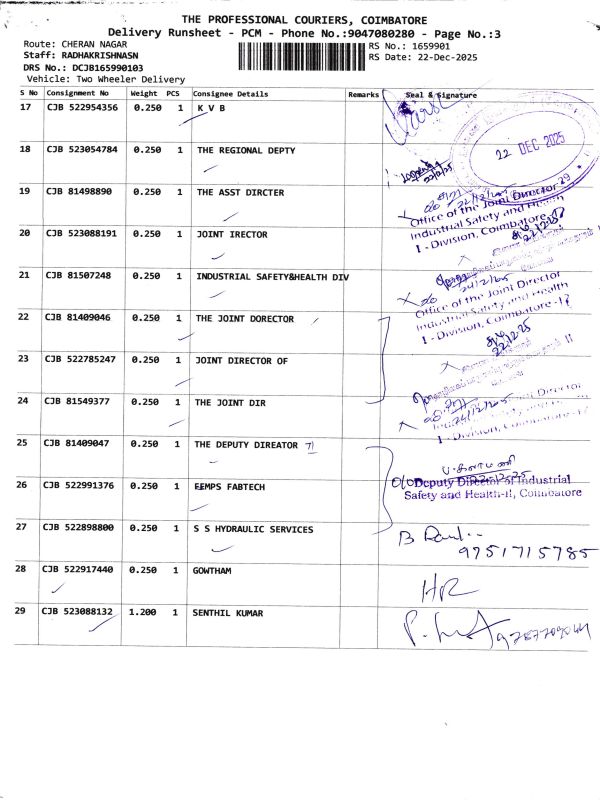 THE PROFESSIONAL COURIERS, COIMBATORE
Delivery Runsheet - PCM - Phone No.:9047080280 - Page No.:3
Route: CHERAN NAGAR
RS No.: 1659901
Staff: RADHAKRISHNASN
RS Date: 22-Dec-2025
DRS No.: DCJB165990103
Vehicle: Two Wheeler Delivery
S No Consignment No Weight PCS Consignee Details Remarks Seal & Signature
17 CJB 522954356 0.250 1 K V B
22 DEC 2025
18 CJB 523054784 0.250 1 THE REGIONAL DEPTY
19 CJB 81498890 0.250 1 THE ASST DIRCTER
Office of the Joint Director
Industrial Safety and Health
I - Division, Coimbatore
20 CJB 523088191 0.250 1 JOINT IRECTOR
21 CJB 81507248 0.250 1 INDUSTRIAL SAFETY&HEALTH DIV
Office of the Joint Director
Industrial Safety and Health
I - Division, Coimbatore
22 CJB 81409046 0.250 1 THE JOINT DORECTOR
22.12.25
23 CJB 522785247 0.250 1 JOINT DIRECTOR OF
24 CJB 81549377 0.250 1 THE JOINT DIR
I - Division, Coimbatore
25 CJB 81409047 0.250 1 THE DEPUTY DIREATOR
22.12.25
Deputy Director of Industrial
Safety and Health-II, Coimbatore
26 CJB 522991376 0.250 1 EEMPS FABTECH
27 CJB 522898800 0.250 1 S S HYDRAULIC SERVICES
9751715785
28 CJB 522917440 0.250 1 GOWTHAM
HR
29 CJB 523088132 1.200 1 SENTHIL KUMAR